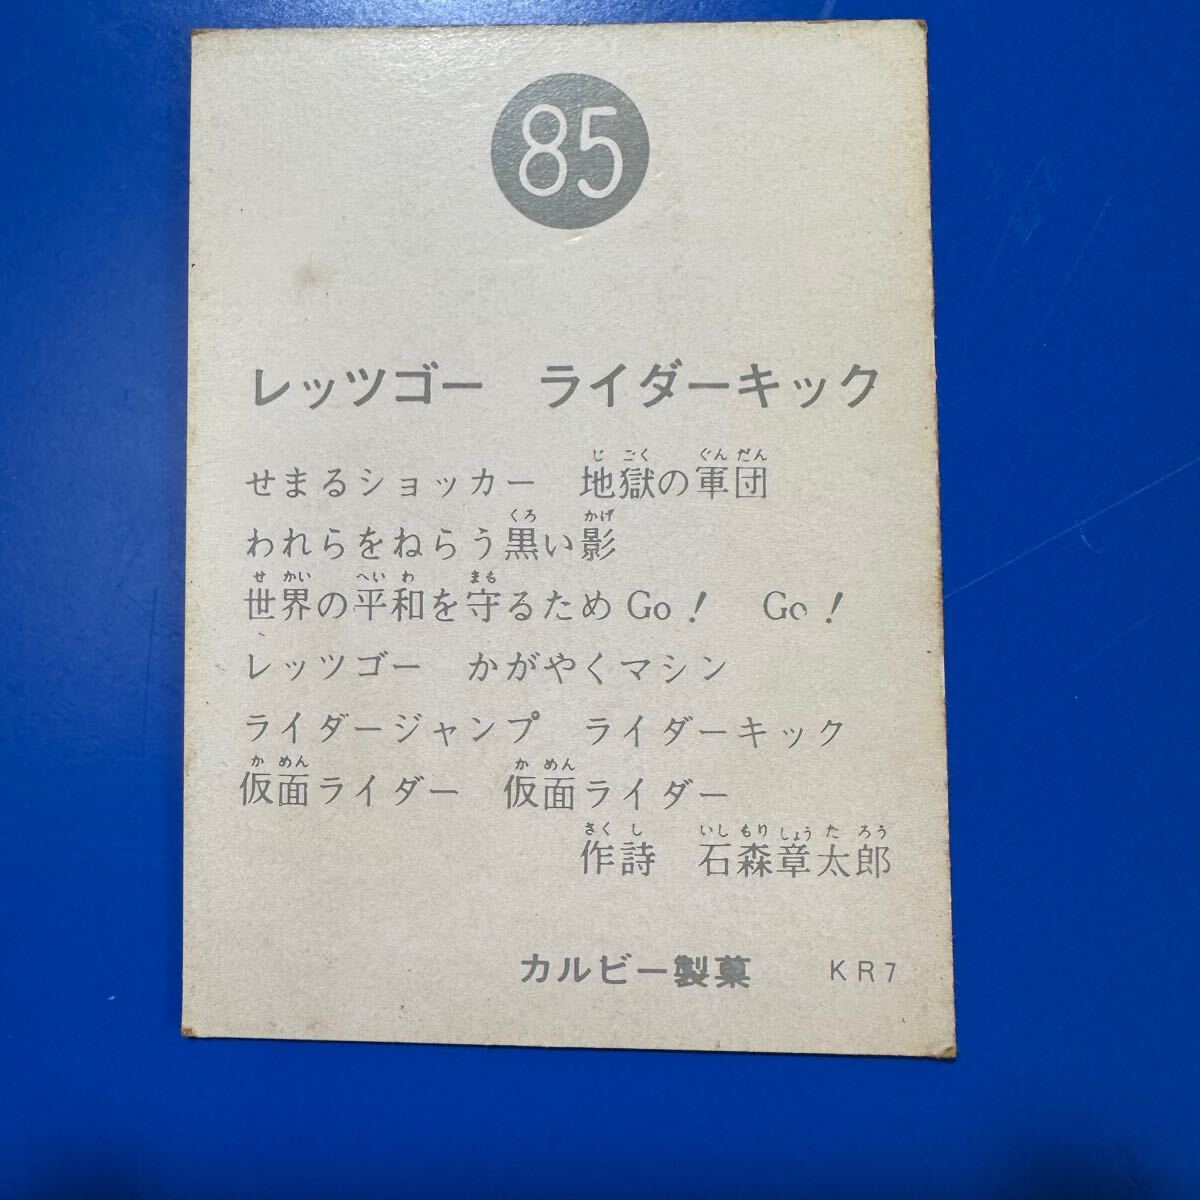 85
レッツゴー　ライダーキック
せまるショッカー　地獄の軍団
われらをねらう黒い影
世界の平和を守るためGo！　Go！
レッツゴー　かがやくマシン
ライダージャンプ　ライダーキック
仮面ライダー　仮面ライダー
作詩　石森章太郎
カルビー製菓　KR7